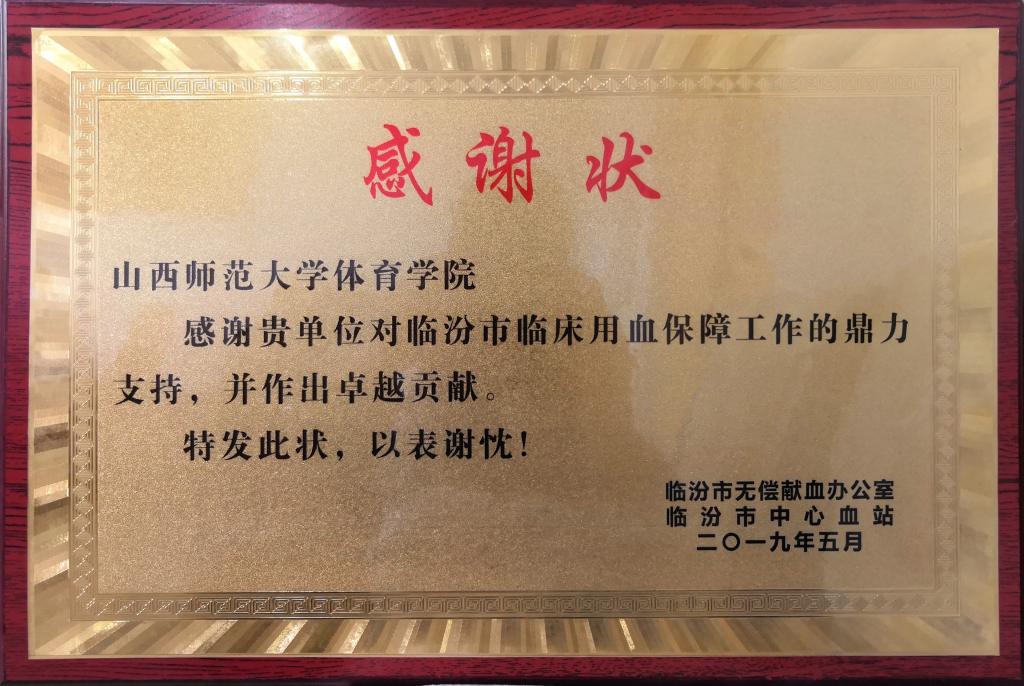 感谢状
山西师范大学体育学院
感谢贵单位对临汾市临床用血保障工作的鼎力
支持，并作出卓越贡献。
特发此状，以表谢忱！
临汾市无偿献血办公室
临汾市中心血站
二〇一九年五月